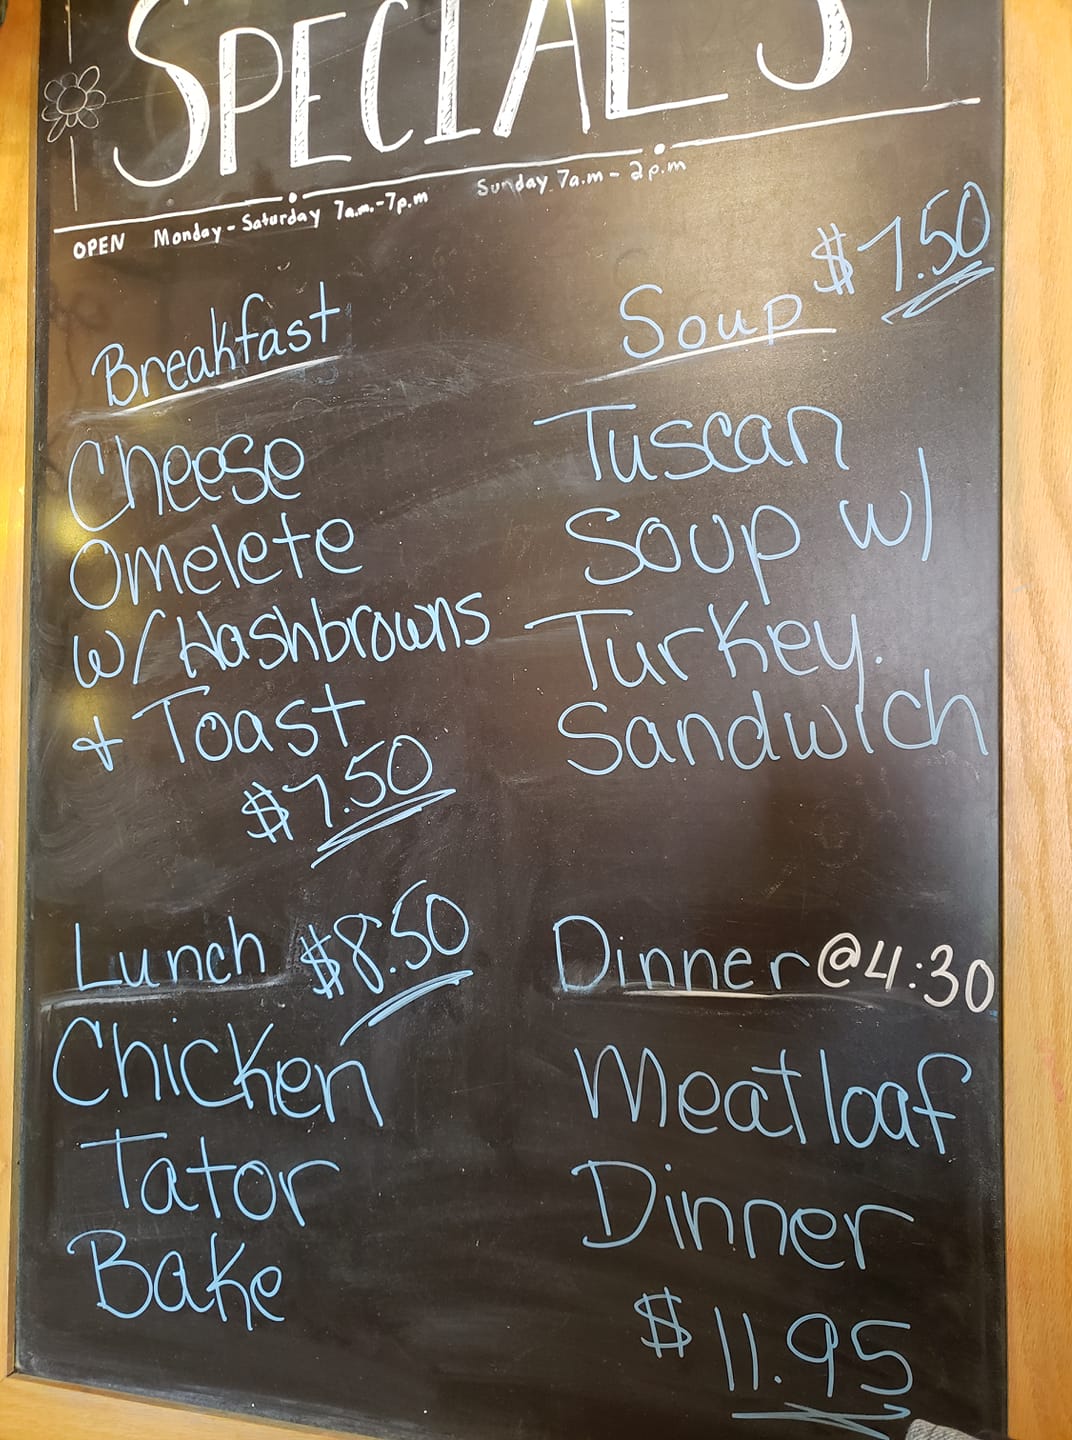 SPECIALS
OPEN Monday - Saturday 7a.m.-7p.m Sunday 7a.m - 2p.m
Breakfast
Cheese
Omelete
w/ Hashbrowns
& Toast
$7.50
Soup $7.50
Tuscan
Soup w/
Turkey
Sandwich
Lunch $8.50
Chicken
Tator
Bake
Dinner @4:30
Meatloaf
Dinner
$11.95